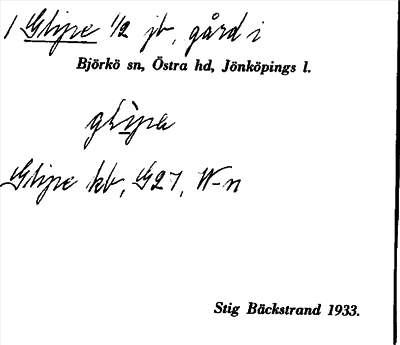 1 Glipe 1/2 jb, gård i
Björkö sn, Östra hd, Jönköpings l.
glìpa
Glipe kb, G27, W-n
Stig Bäckstrand 1933.